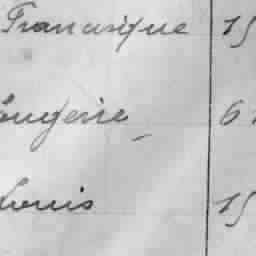 Francisque 15
ougerie 6
Louis 15